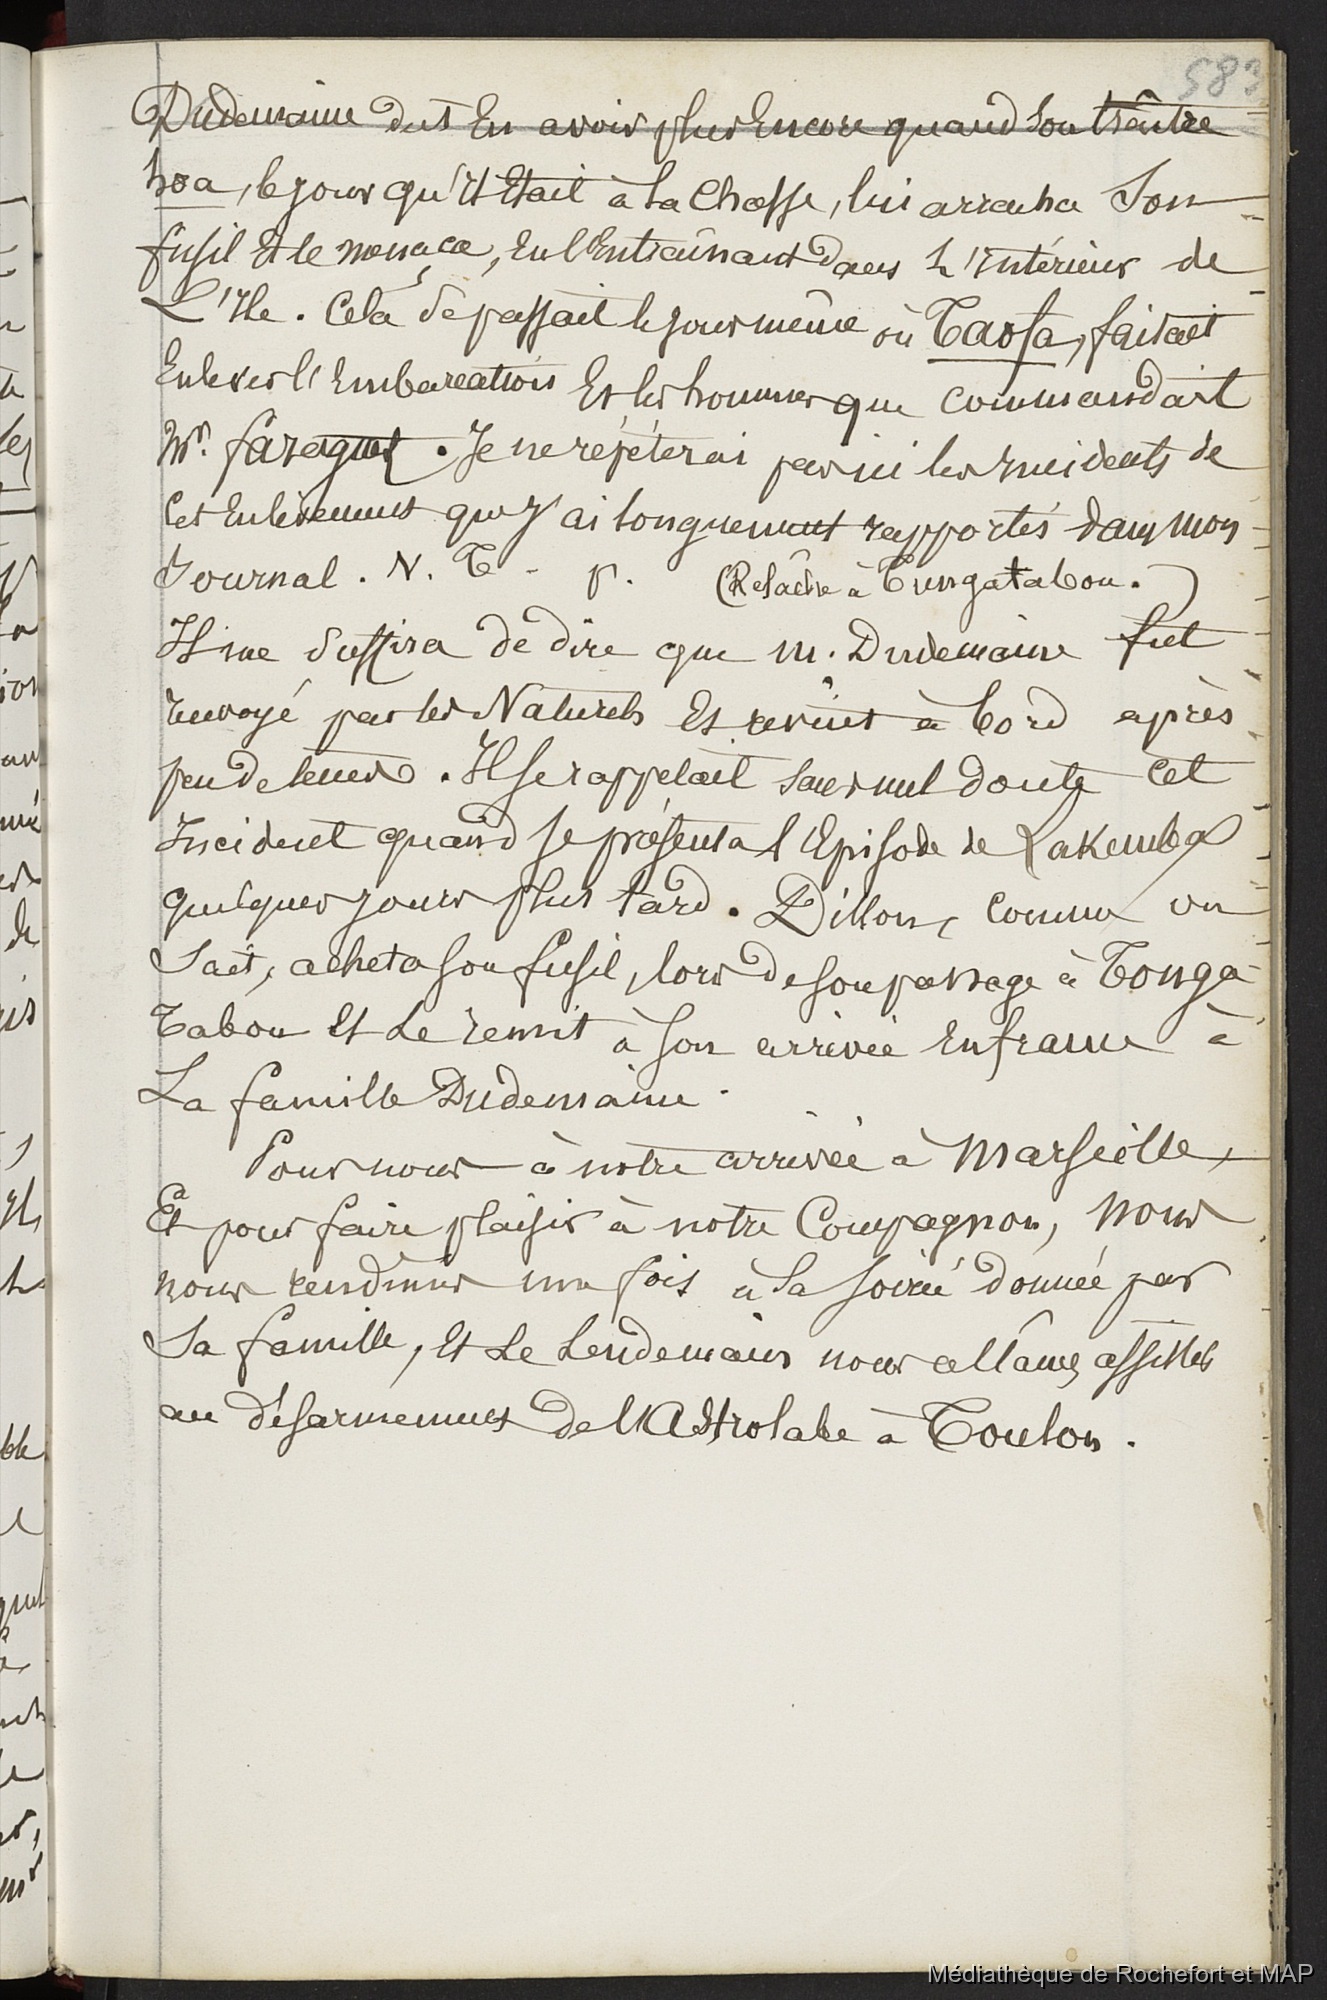 583
Dudemaine dut En avoir plus Encore quand son traître
hoa, le jour qu'il Etait à La Chasse, lui arracha Son
fusil Et le menaça, En l'Entraînant dans L'Intérieur de
L'Ile. Cela se passait le jour même où Taofa, faisait
Enlever l'Embarcation Et les hommes que commandait
Mr. faraguet. Je ne répéterai pas ici les Incidents de
Cet Enlèvement que J'ai longuement rapportés dans mon
Journal. N. T - p. (Relâche à Tungatabou.)
Il me Suffira de dire que M. Dudemaine fut
renvoyé par les Naturels Et revint à bord après
peu de temps. Il se rappelait sans nul doute cet
Incident quand se présenta l'Episode de Lakemba
quelques jours plus tard. Dillon, comme on
Sait, acheta son fusil, lors de son passage à Tonga
Tabou Et Le remit à son arrivée En france à
La famille Dudemaine.
Pour nous à notre arrivée à Marseille,
Et pour faire plaisir à notre Compagnon, Nous
nous rendîmes une fois à La soirée donnée par
Sa famille, Et Le Lendemain nous allâmes assister
au désarmement de l'Astrolabe à Toulon.
Médiathèque de Rochefort et MAP